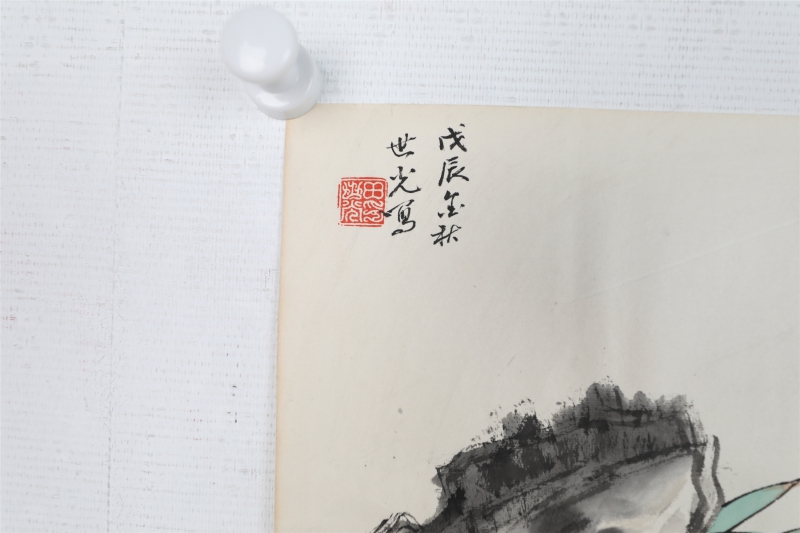 戊辰金秋
世光写
田世光印